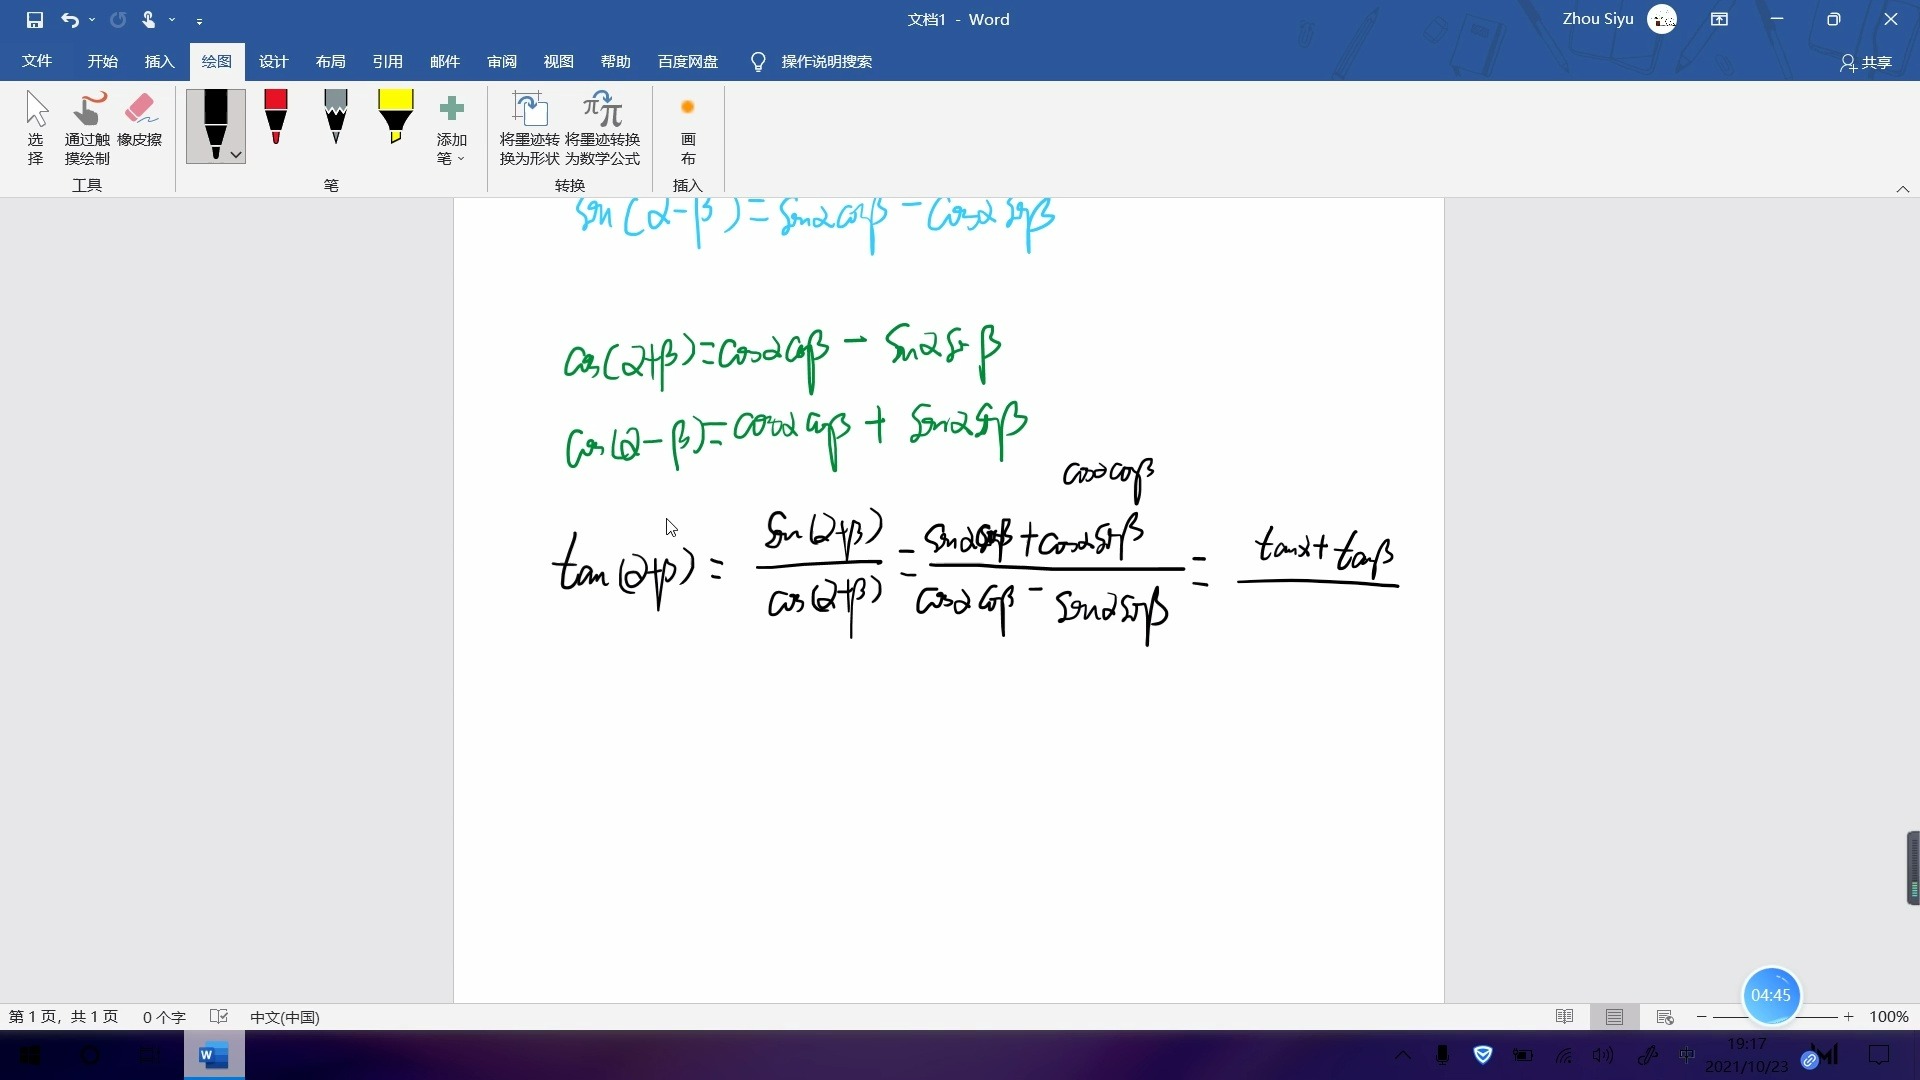 文档1 - Word
Zhou Siyu
文件 开始 插入 绘图 设计 布局 引用 邮件 审阅 视图 帮助 百度网盘 操作说明搜索 共享
选择 通过触摸绘制 橡皮擦 添加笔 将墨迹转换为形状 将墨迹转换为数学公式 画布
工具 笔 转换 插入
sin(α-β)=sinαcosβ-cosαsinβ
cos(α+β)=cosαcosβ-sinαsinβ
cos(α-β)=cosαcosβ+sinαsinβ
cosαcosβ
tan(α+β)= sin(α+β) = sinαcosβ+cosαsinβ = tanα+tanβ
cos(α+β) cosαcosβ-sinαsinβ
04:45
第1页，共1页 0个字 中文(中国) 100%
19:17
中
2021/10/23